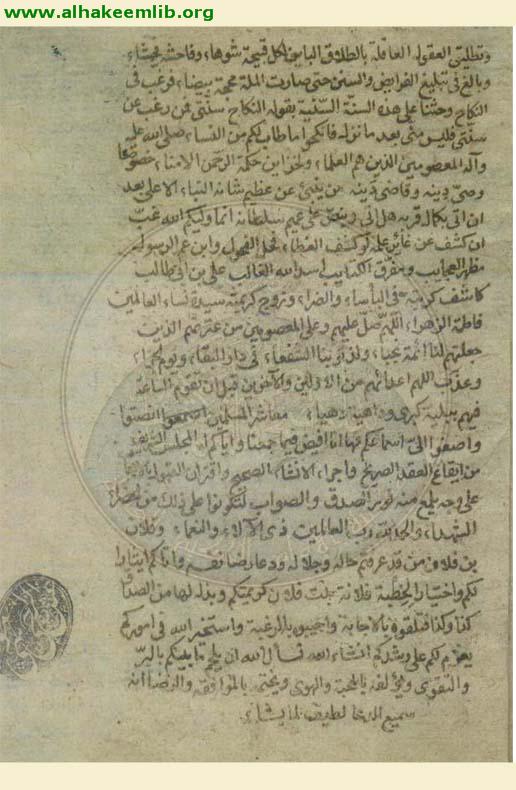 www.alhakeemlib.org
وتطلبتى العقول العاقلة بالطلاق الباين لكل قبيحة شوهاء وفاحشة فحشاء
وبالغ فى تبليغ الفرايض والسنن حتى صارت الملة محجة بيضاء فرغب فى
النكاح وحثنا على هذه السنة السنية بقوله النكاح سنتى فمن رغب عن
سنتى فليس منى بعد ما نزله فانكحوا ما طاب لكم من النساء صلى الله عليه
وآله المعصومين الذين هم العلماء وخزاين حكمة الرحمن الامناء خصوصا
وصى دينه وقاضى دينه من ينبئ عن عظيم شانه النباء الاعلى بعد
ان اتى بكمال قربه هل اتى وينص على عميم سلطانه انما وليكم الله غب
ان كشف عن غاية علمه لو كشف الغطاء فحل الفحول وابن عم الرسول
مظهر العجايب ومفرق الكتايب اسد الله الغالب على بن ابى طالب
كاشف كربته فى البأساء والضراء وزوج كريمته سيدة نساء العالمين
فاطمة الزهراء اللهم صل عليهم وعلى المعصومين من عترتهم الذين
جعلتهم لنا ائمة نجباء ولذنوبنا الشفعاء فى دار البقاء ويوم الجزاء
وعذب اللهم اعدائهم من الاولين والآخرين قبل ان تقوم الساعة
فيهم ببلية كبرى وداهية دهياء معاشر المسلمين اسمعوا انصتوا
واصغوا الى اسماعكم فها انا افيض فيما جمعنا واياكم له المجلس الشريف
من ايقاع العقد الصريح واجراء الانشاء الصحيح واقتران القبول بالايجاب
على وجه يلمع منه نور الصدق والصواب لتكونوا على ذلك من الحضراء
الشهداء والحمد لله رب العالمين ذى الآلاء والنعماء وفلان
بن فلان من قد عرفتم حاله وجلاله ودعاه رضا نفسه واتاكم ايثارا
لكم واختيارا لخطبة فلانة بنت فلان كريمتكم وبذل لها من الصداق
كذا وكذا فتلقوه بالاجابة واجيبوه بالرغبة واستخيروا الله فى اموركم
يعزم لكم على رشدكم انشاء الله نسأل الله ان يلحم ما بينكم بالبر
والتقوى ويؤلفه بالمحبة والهوى ويختمه بالموافقة والرضا انه
سميع الدعا لطيف لما يشاء